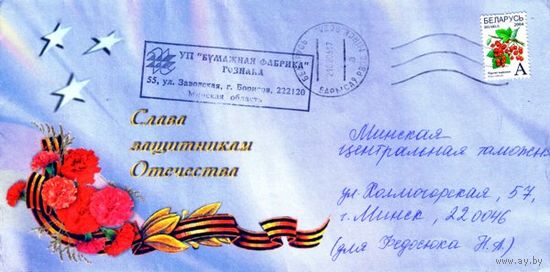 УП "БУМАЖНАЯ ФАБРИКА"
ГОЗНАКА
55, ул. Заводская, г. Борисов, 222120
Минская область
БЕЛАРУСЬ
BELARUS
2004
А
Слава
защитникам
Отечества
Минская
центральная таможня
ул Холмогорская, 57,
г. Минск, 220046
(для Федосюка Н.А)
www.ay.by